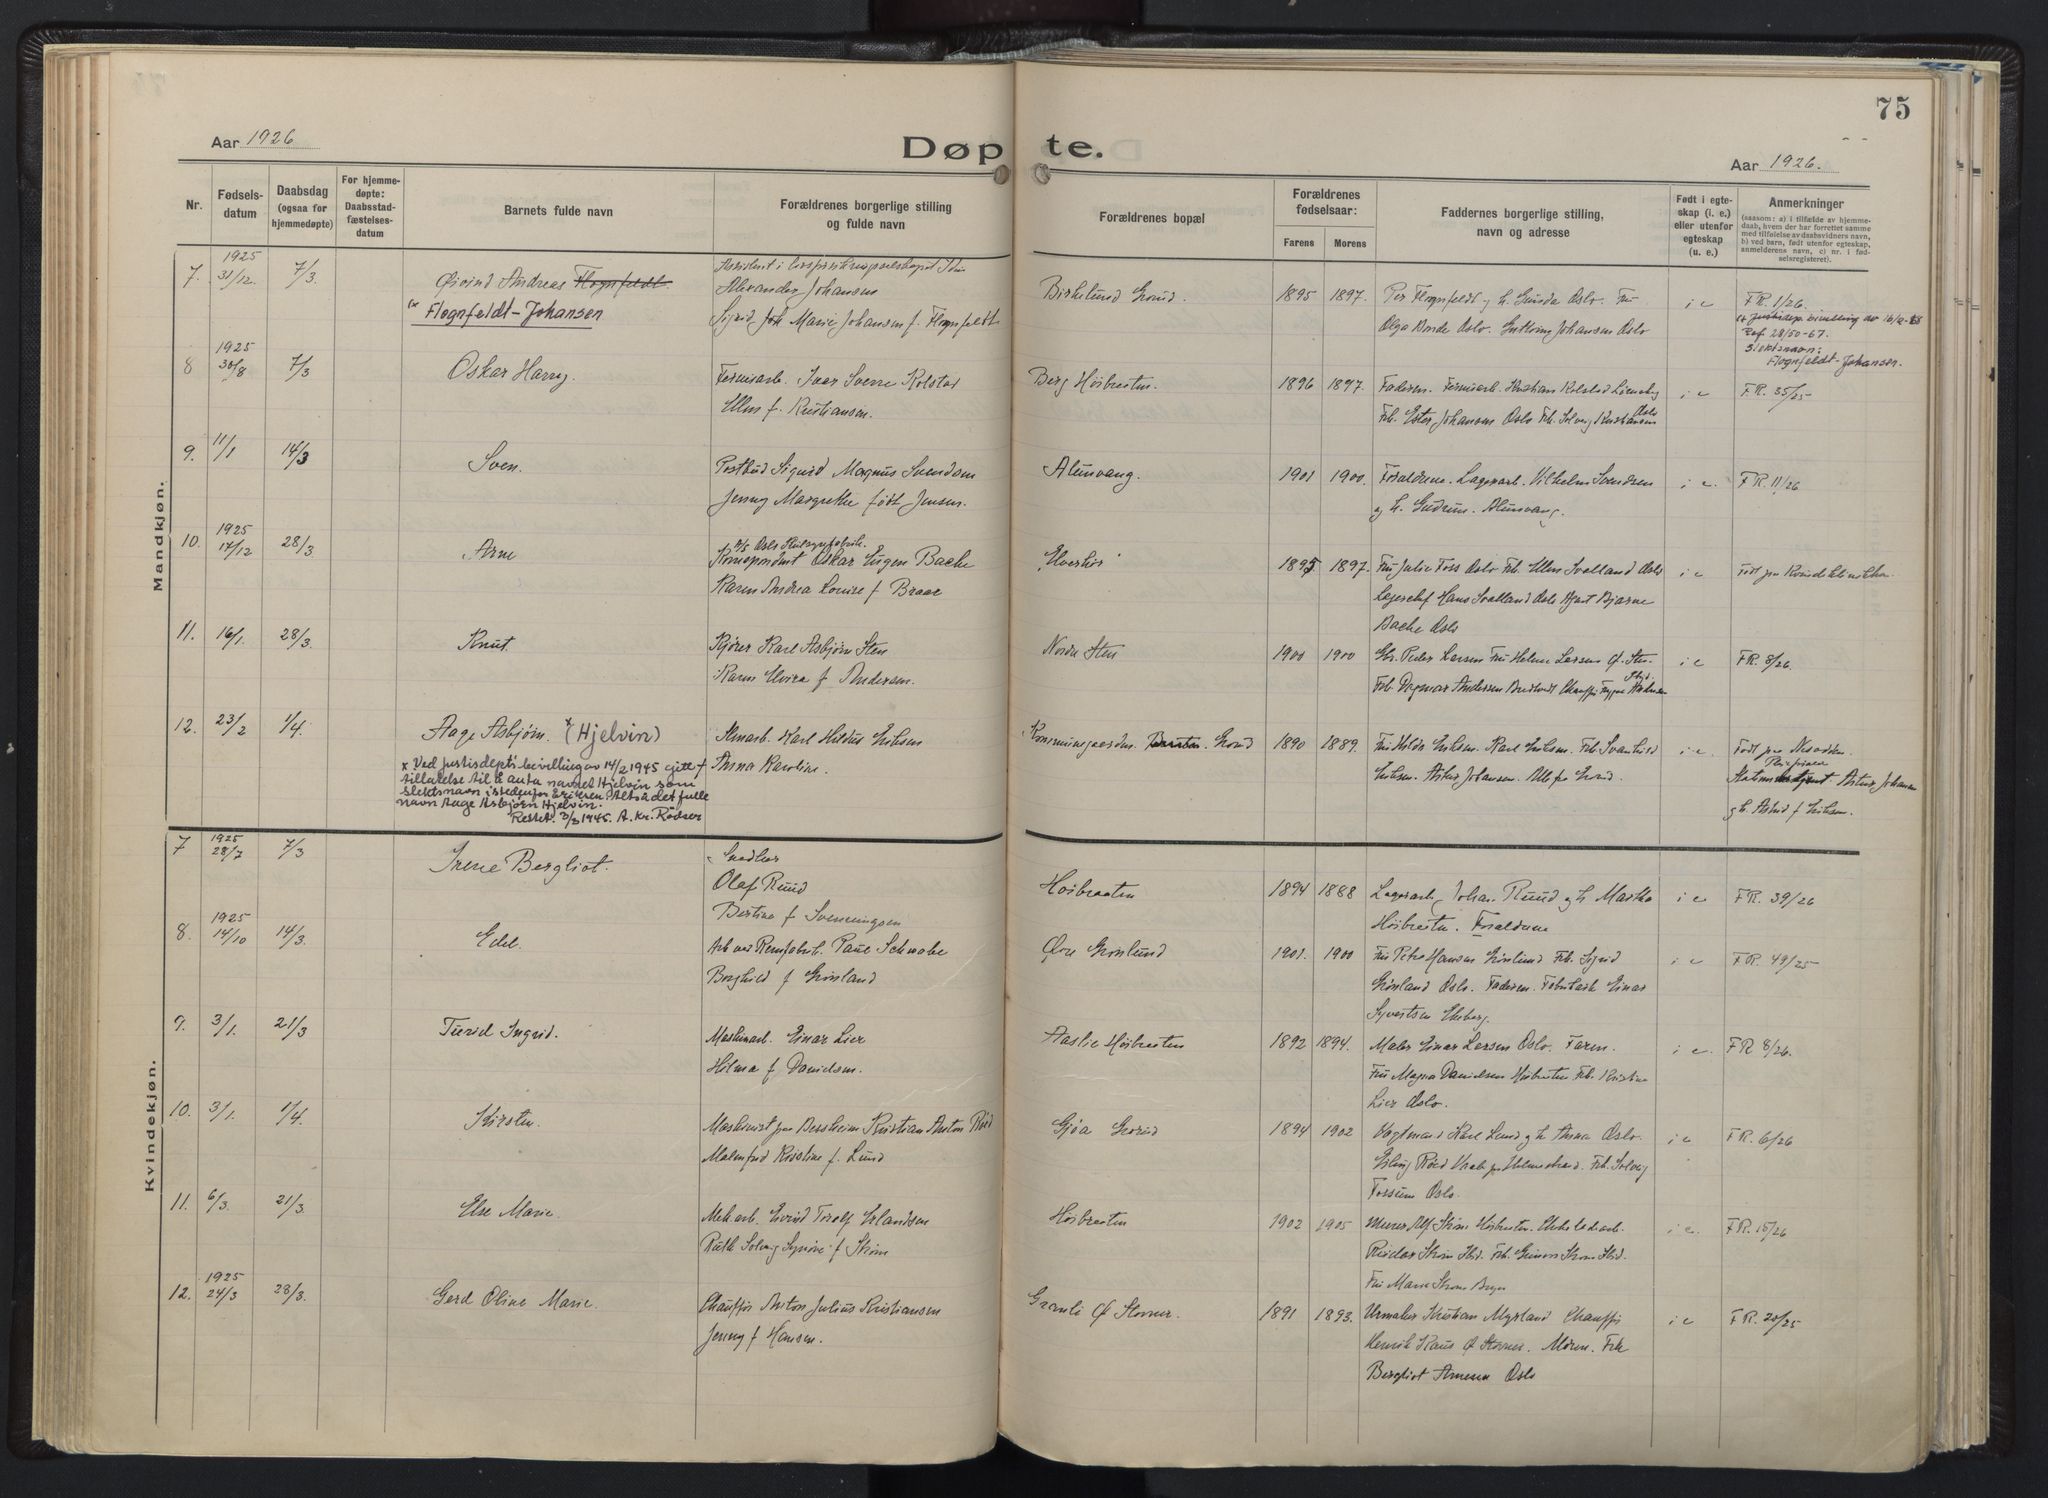 75
Aar 1926
Døpte.
Aar 1926.
Nr.
Fødsels-
datum
Daabsdag
(ogsaa for
hjemmedøpte)
For hjemme-
døpte:
Daabsstad-
fæstelses-
datum
Barnets fulde navn
Forældrenes borgerlige stilling
og fulde navn
Forældrenes bopæl
Forældrenes
fødselsaar:
Farens
Morens
Faddernes borgerlige stilling,
navn og adresse
Født i egte-
skap (i. e.)
eller utenfor
egteskap
(u. e.)
Anmerkninger
(saasom: a) i tilfælde av hjemme-
daab, hvem der har forrettet samme
med tilføielse av daabsvidners navn,
b) ved barn, født utenfor egteskap,
anmelderens navn, c) nr. i fød-
selsregisteret).
Mandkjøn.
7
1925
31/12
7/3
Øivind Andreas Flognfeldt
Flognfeldt-Johansen
Assistent i
Alexander Johansen
Sigrid Marie Johansen f. Flognfeldt
Birkelund Grorud.
1895 1897.
Per Flognfeldt og h. Gunda Oslo. Fru
Olga Oslo. Johansen Oslo
i e
F.R. 1/26.
Ref. 28/50-67.
Slektsnavn:
Flognfeldt-Johansen.
8
1925
30/8
7/3
Oskar Harry.
Ivar Sverre Kolstad
Ellen f. Kristiansen.
Berg Høibraaten.
1896 1897.
Faderen. Kristian Kolstad
Frk. Ester Johansen Oslo Frk. Solveig Kristiansen Oslo
i e
F.R. 35/25
9.
11/1
14/3
Sven.
Postbud Sigurd Magnus Svendsen
Jenny Margrethe født Jensen.
Alunvang.
1901 1900.
Forældrene. Lagerarb. Vilhelm Svendsen
og h. Gudrun. Alunvang.
i e.
F.R. 11/26
10.
1925
17/12
28/3
Arne
A/S Oslo
Korrespondent Oskar Eugen Bache
Karen Andrea Louise f Braae
Elverhøi
1895 1897.
Fru Julie Foss Oslo Frk. Ellen Svalland Oslo
Hans Svalland Oslo Agent Bjarne
Bache Oslo
i e
Født paa Kvindeklinikken.
11.
16/1.
28/3
Knut.
Kjører Karl Asbjørn Sten
Karen Elvira f Andersen.
Nordre Sten
1900 1900
Gbr. Peder Larsen Fru Helene Larsen Ø. Sten.
Frk. Dagmar Andersen Bredtvedt Chauffør Trygve Andersen Ibid.
i e
F.R. 8/26.
12.
23/2
1/4.
Aage Asbjørn. x (Hjelvin)
x Ved justisdept's bevilling av 14/2 1945 gitt
tillatelse til å anta navnet Hjelvin som
slektsnavn istedenfor Eriksen. Altså det fulle
navn Aage Asbjørn Hjelvin.
Rettet. 3/3 1945. A. Kr. Rødser
Karl Hildus Eriksen
Anna Karoline.
Kommunegaarden. Grorud
1890 1889.
Fru Hilda Eriksen. Karl Eriksen. Frk Svanhild
Eriksen. Astur Johansen. Alle fra Grorud.
i e.
Født paa Nesodden.
Astur Johansen
og h. Astrid f Eriksen.
Kvindekjøn.
7
1925
28/7
7/3
Irene Bergliot.
Snedker
Olaf Ruud
Bertine f Svenningsen
Høibraaten
1894 1888
Lagerarb. Johan Ruud og h Martha
Høibraaten. Forældrene
i e
F.R. 39/26
8.
1925
14/10
14/3.
Edel.
Arb ved Remfabrik. Paul Schwabe
Borghild f Grønland
Øvre Grønlund
1901. 1900
Fru Petra Hansen Grønlund Frk. Sigrid
Grønland Oslo. Faderen. Fabrikarb Einar
Syvertsen Ekeberg.
i e
F.R. 49/25
9.
3/1.
21/3
Turid Ingrid.
Maskinarb. Einar Lier
Hilma f Danielsen.
Aaslie Høibraaten
1892 1894.
Maler Einar Larsen Oslo. Faren.
Fru Magna Danielsen Høibraaten Frk. Kristine
Lier Oslo.
i e.
F.R 8/26.
10.
3/1.
1/4.
Kirsten.
Maskinist paa Bersheim Kristian Anton Röed
Malmfrid Kristine f. Lund
Gjøa Grorud
1894 1902
Vagtmand Karl Lund og h Anna Oslo.
Erling Röed Frk. Solveig
Fossum Oslo.
i e
F.R. 6/26
11.
6/3.
21/3.
Else Marie.
Mek arb. Eivind Torolf Erlandsen
Ruth Solveig Synøve f Strøm
Høibraaten
1902 1905
Murer Alf Strøm Høibraaten.
Reidar Strøm Ibid. Frk. Gunvor Strøm Ibid.
Fru Marie Strøm Bryn
i e.
F.R. 15/26
12.
1925
24/3
28/3.
Gerd Oline Marie.
Chauffør Anton Julius Kristiansen
Jenny f Hansen.
Granli Ø Stovner.
1891 1893.
Urmaker Kristian Myrland Chauffør
Henrik Ø Stovner. Moren. Frk
Bergliot Arnesen Oslo
i e
F.R. 20/25